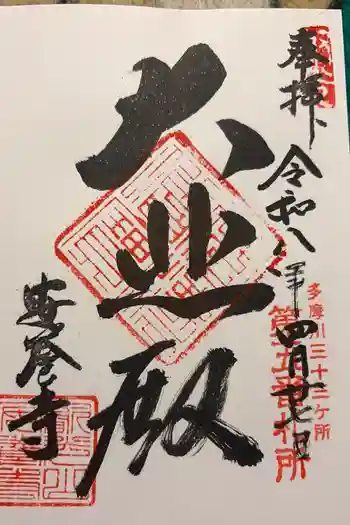 奉拝
令和八年四月廿七日
多摩川三十三ヶ所
第五番札所
大悲殿
安養寺